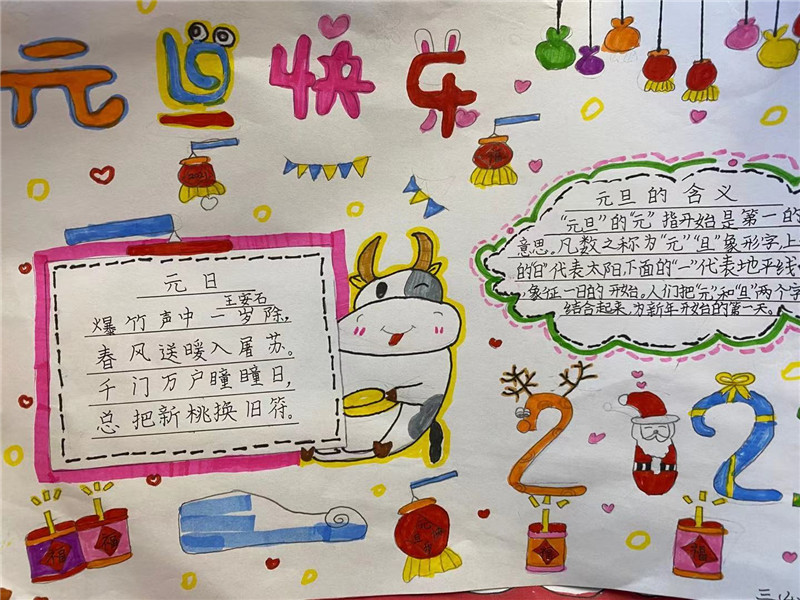 元旦快乐
元旦的含义
"元旦"的"元"指开始是第一的
意思。凡数之称为"元""旦"象形字,上
的"日"代表太阳,下面的"一"代表地平线
,象征一日的开始。人们把"元"和"旦"两个字
结合起来,为新年开始的第一天。
元日
王安石
爆竹声中一岁除,
春风送暖入屠苏。
千门万户瞳瞳日,
总把新桃换旧符。
202
福
福
福